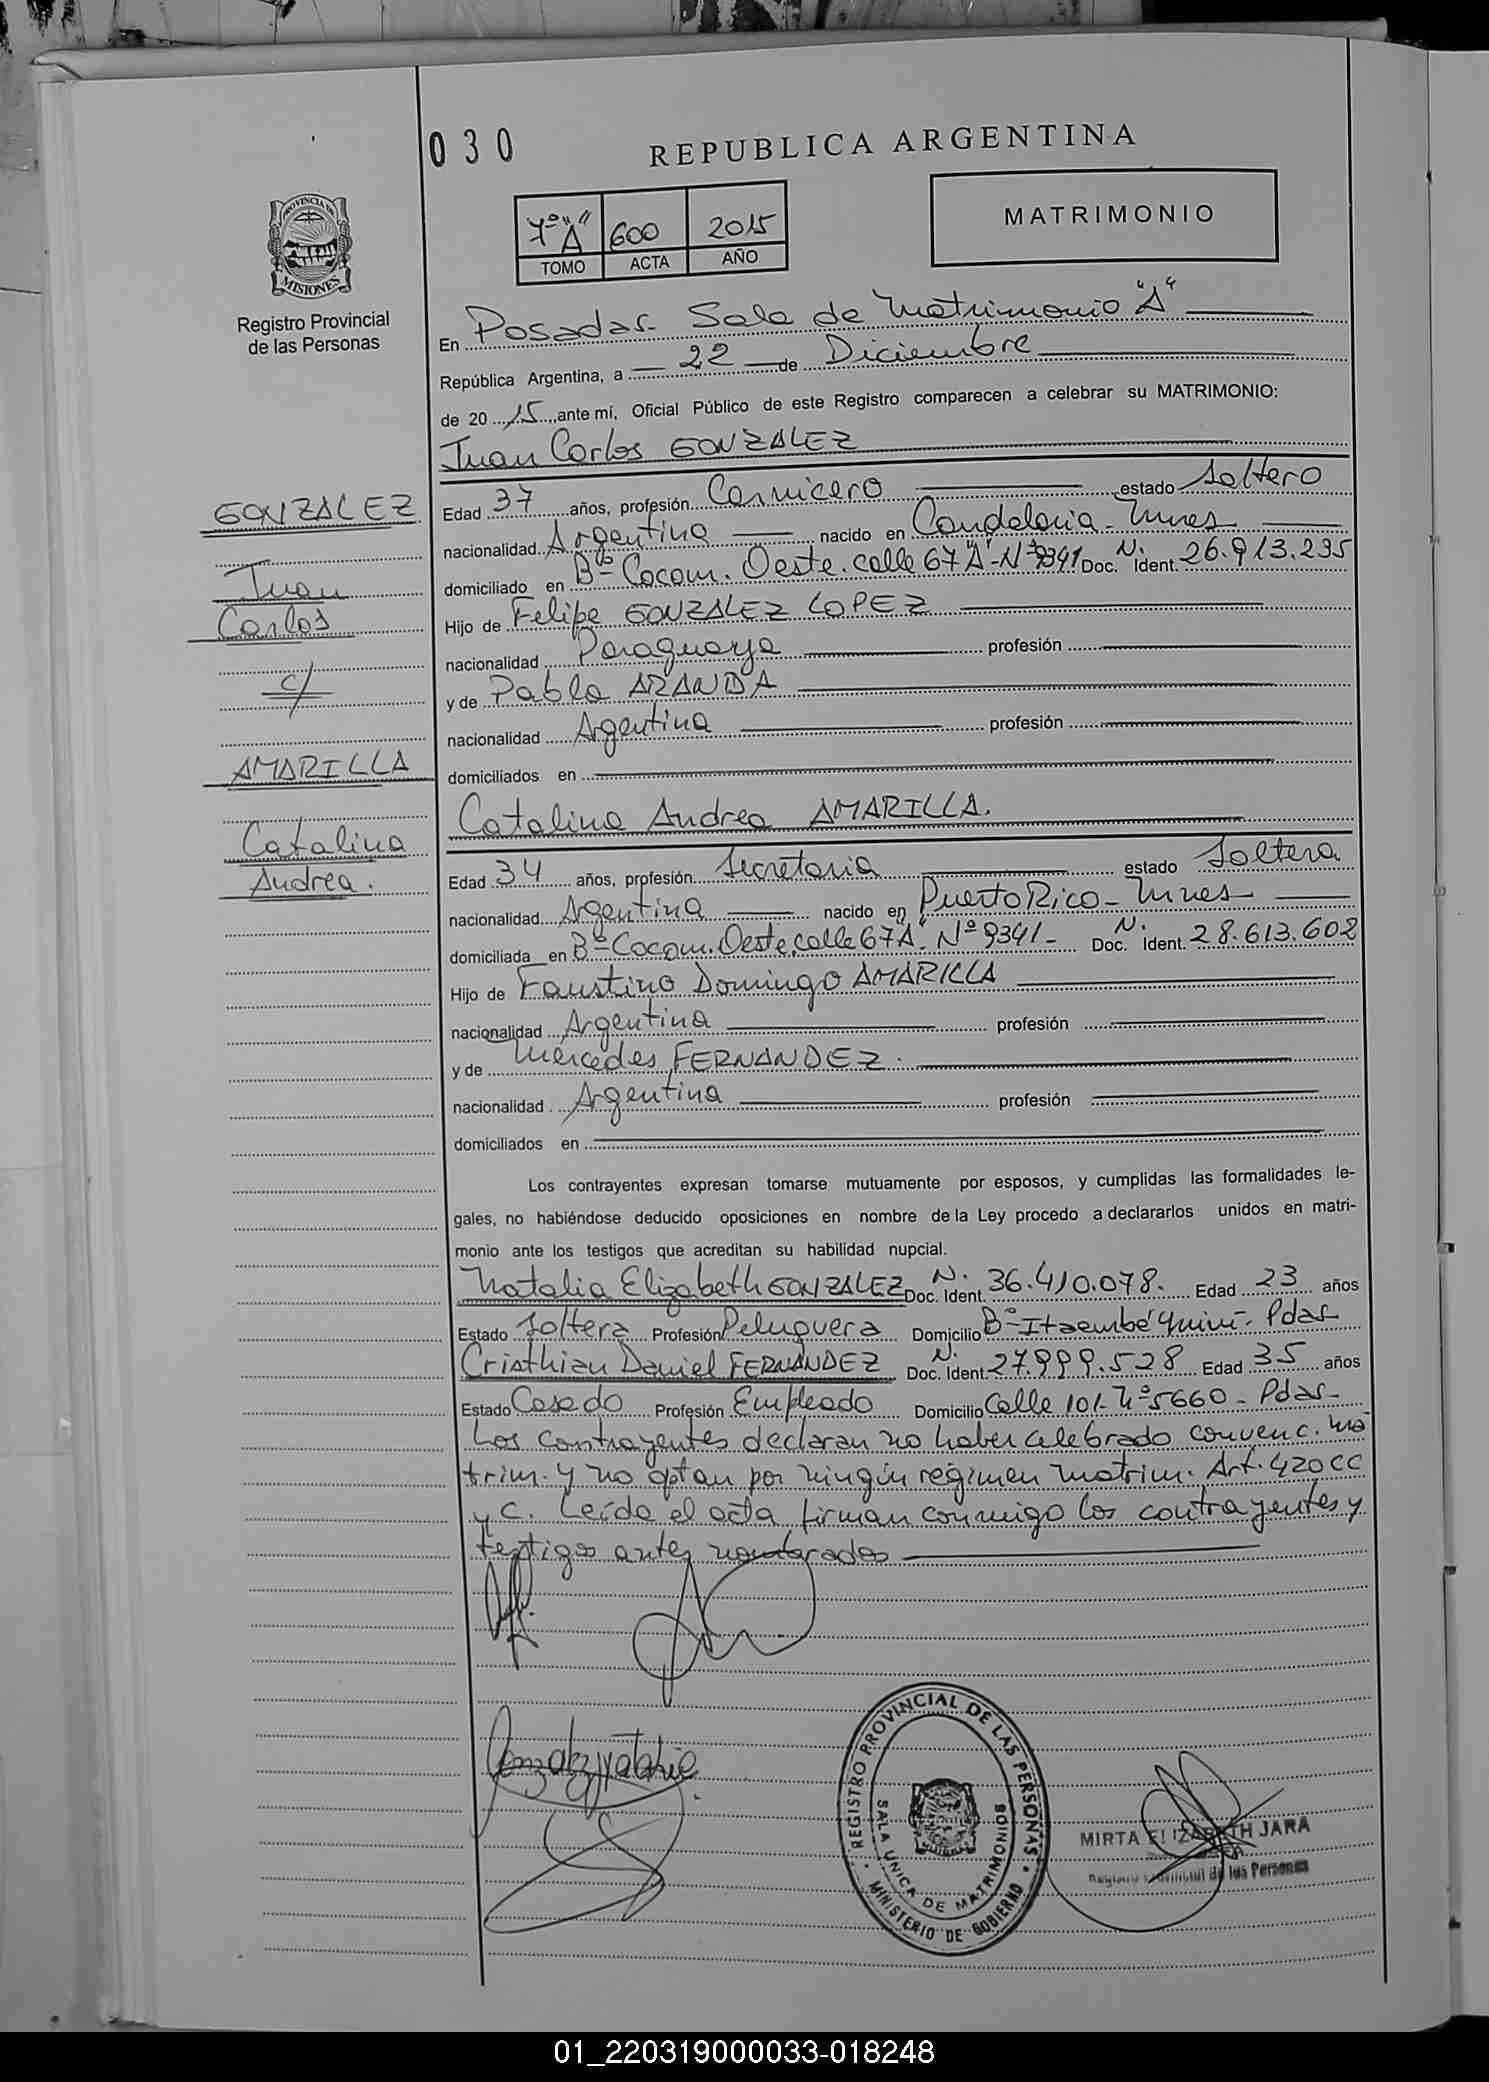 030
REPUBLICA ARGENTINA
PROVINCIA DE
MISIONES
Registro Provincial
de las Personas
7º "A" 600 2015
TOMO ACTA AÑO
MATRIMONIO
En Posadas- Sala de Matrimonio "A"
República Argentina, a 22 de Diciembre
de 20 15 ante mí, Oficial Público de este Registro comparecen a celebrar su MATRIMONIO:
Juan Carlos GONZALEZ
GONZALEZ
Juan
Carlos
c/
AMARILLA
Catalina
Andrea.
Edad 37 años, profesión Carnicero estado Soltero
nacionalidad Argentina nacido en Candelaria- Mnes
domiciliado en Bº- Cocom. Oeste. calle 67 "A"- Nº 9341 Doc. N. Ident. 26.913.235
Hijo de Felipe GONZALEZ LOPEZ
nacionalidad Paraguaya profesión
y de Pabla ARANDA
nacionalidad Argentina profesión
domiciliados en
Catalina Andrea AMARILLA.
Edad 34 años, profesión Secretaria estado Soltera
nacionalidad Argentina nacido en Puerto Rico- Mnes
domiciliada en Bº Cocom. Oeste, calle 67 "A"- Nº 9341- Doc. N. Ident. 28.613.602
Hijo de Faustino Domingo AMARILLA
nacionalidad Argentina profesión
y de Mercedes FERNANDEZ.
nacionalidad Argentina profesión
domiciliados en
Los contrayentes expresan tomarse mutuamente por esposos, y cumplidas las formalidades le-
gales, no habiéndose deducido oposiciones en nombre de la Ley procedo a declararlos unidos en matri-
monio ante los testigos que acreditan su habilidad nupcial.
Natalia Elizabeth GONZALEZ Doc. N. Ident. 36.410.078. Edad 23 años
Estado Soltera Profesión Peluquera Domicilio Bº- Itaembé Miní- Pdas-
Cristhian Daniel FERNANDEZ Doc. N. Ident. 27.999.528 Edad 35 años
Estado Casado Profesión Empleado Domicilio Calle 101- Nº 5660- Pdas-
Los contrayentes declaran no haber celebrado convenc. ma
trim. y no optan por ningún régimen matrim. Art. 420 CC
y C. Leída el acta, firman conmigo los contrayentes y
testigos antes nombrados
REGISTRO PROVINCIAL DE LAS PERSONAS
SALA UNICA DE MATRIMONIOS
MINISTERIO DE GOBIERNO
MIRTA ELIZABETH JARA
Registro Provincial de las Personas
01_220319000033-018248